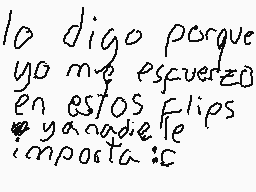 lo digo porque
yo me esfuerzo
en estos flips
ya nadie le
importa :c